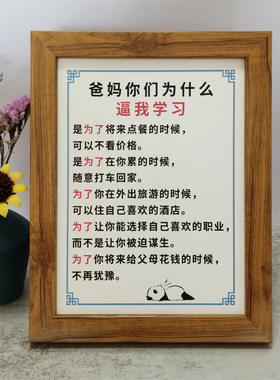 爸妈你们为什么
逼我学习
是为了将来点餐的时候，
可以不看价格。
是为了在你累的时候，
随意打车回家。
为了你在外出旅游的时候，
可以住自己喜欢的酒店。
为了让你能选择自己喜欢的职业，
而不是让你被迫谋生。
为了你将来给父母花钱的时候，
不再犹豫。